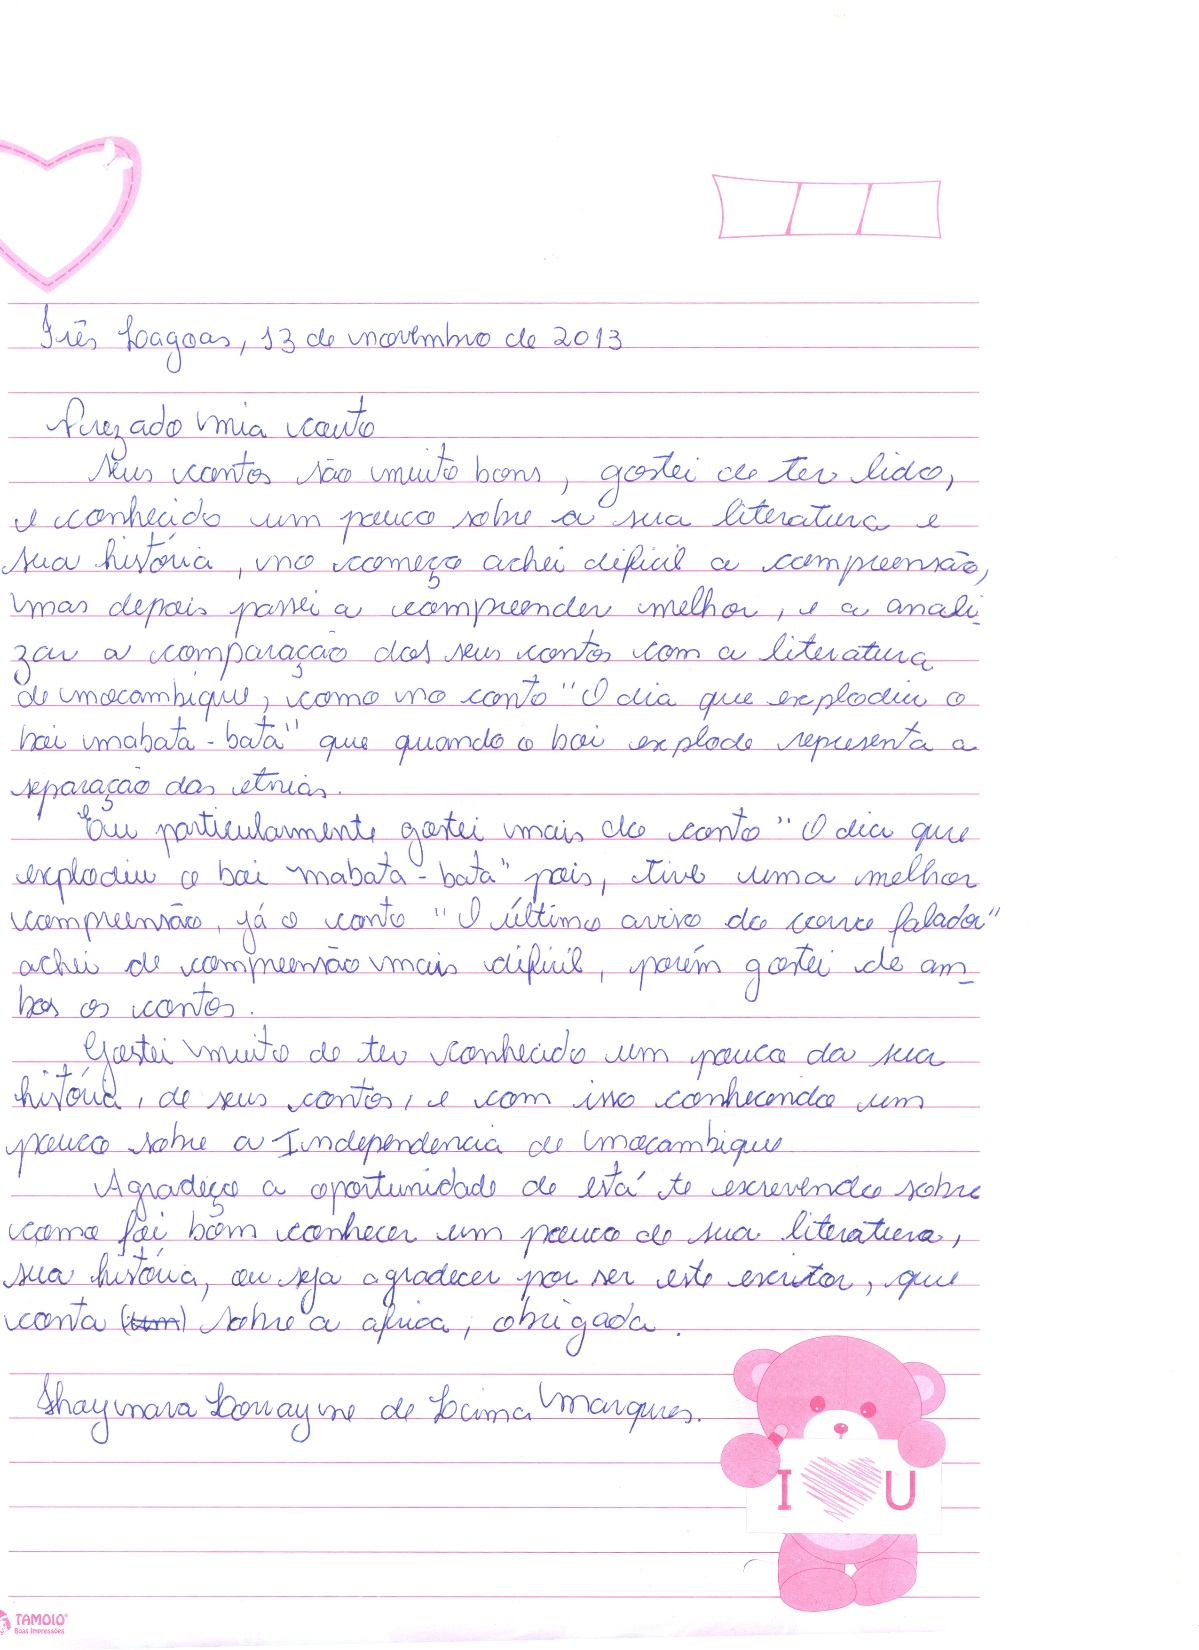 Três Lagoas, 13 de novembro de 2013
Prezado mia couto
seus contos são muito bons, gostei de ter lido,
e conhecido um pouco sobre a sua literatura e
sua história, no começo achei dificil a compreensão,
mas depois passei a compreender melhor, e a anali-
zar a comparação dos seus contos com a literatura
de mocambique, como no conto "O dia que explodiu o
boi mabata-bata" que quando o boi explode representa a
separação das etnias.
Eu particularmente gostei mais do conto "O dia que
explodiu o boi mabata-bata" pois, tive uma melhor
compreensão, já o conto "O último aviso do corvo falador"
achei de compreensão mais dificil, porém gostei de am-
bos os contos.
Gostei muito de ter conhecido um pouco da sua
história, de seus contos, e com isso conhecendo um
pouco sobre a Independencia de mocambique
Agradeço a oportunidade de está te escrevendo sobre
como foi bom conhecer um pouco de sua literatura,
sua história, ou seja agradecer por ser este escritor, que
conta sobre a africa, obrigada.
Shaynara Lorrayne de Lima Marques.
I U
TAMOIO
Boas Impressões